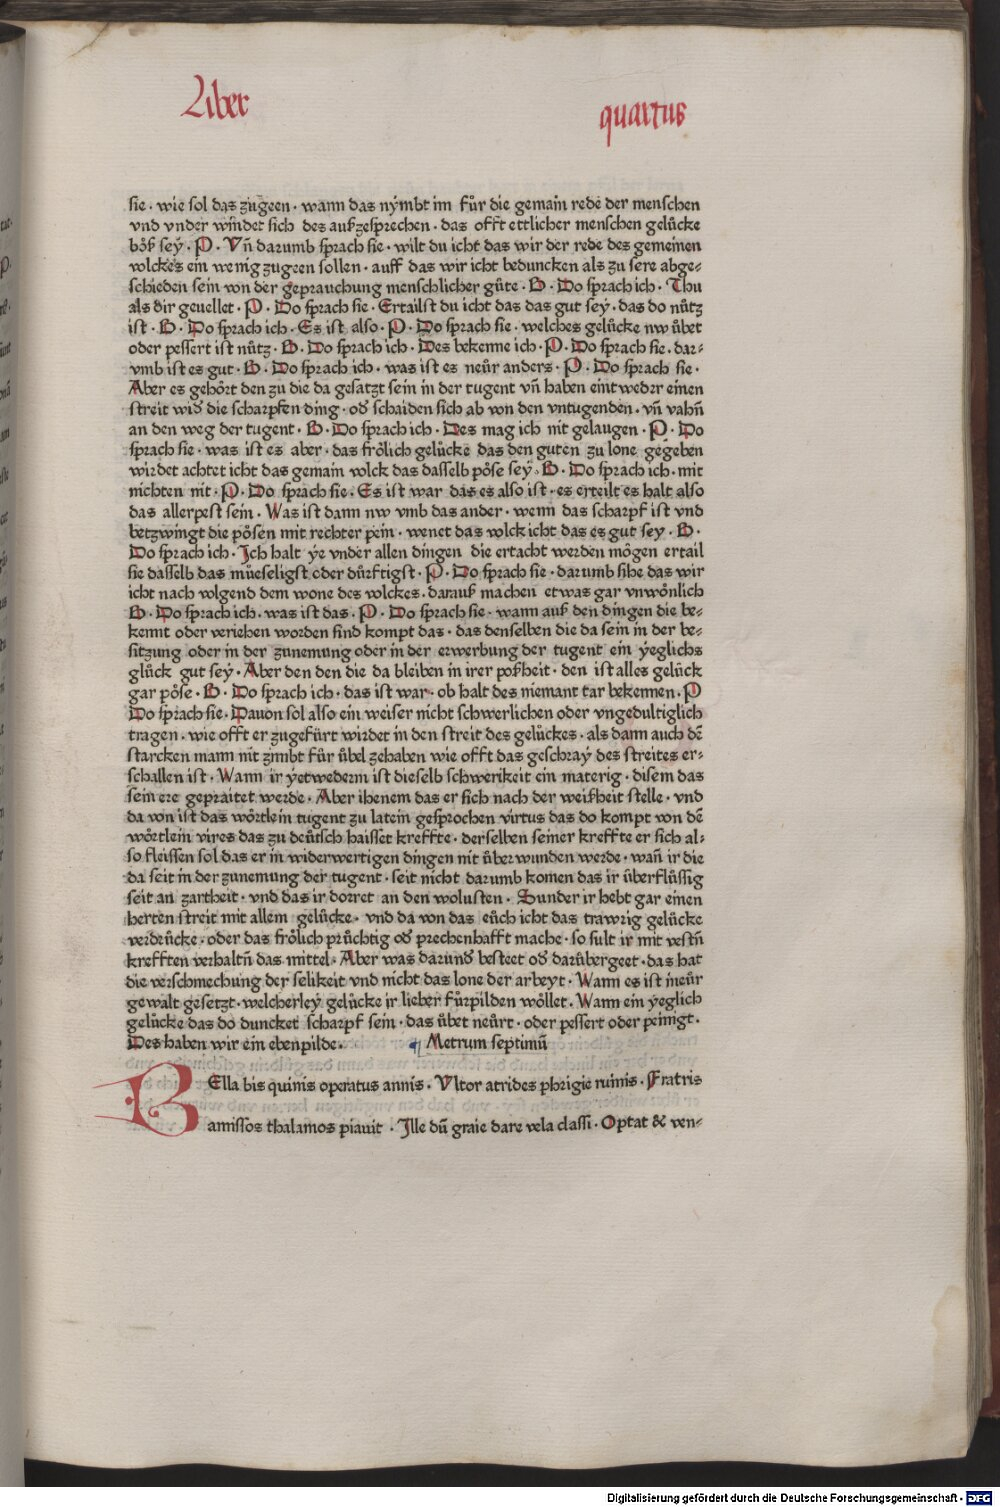 Liber quartus
sie · wie sol das zůgeen · wann das nẏmbt im fůr die gemain rede der menschen
vnd vnder windet sich des außgesprochen · das offt ettlicher menschen gelůcke
bőß seẏ · P · Vñ darumb sprach sie · wilt du icht das wir der rede des gemeinen
volckes ein wenig zugeen sollen · auff das wir icht beduncken als zu sere abge⸗
schieden sein von der geprauchung menschlicher gůte · B · Do sprach ich · Thu
als dir geuellet · P · Do sprach sie · Ertailst du icht das das gut sey · das do nůtz
ist · B · Do sprach ich · Es ist also · P · Do sprach sie · welches gelůcke nw ůbet
oder pessert ist nůtz · B · Do sprach ich · Des bekenne ich · P · Do sprach sie · dar⸗
vmb ist es gut · B · Do sprach ich · was ist es neůr anders · P · Do sprach sie ·
Aber es gehőrt den zu die da gesatzt sein in der tugent vñ haben eintweder einen
streit wid die scharpfen ding · od schaiden sich ab von den vntugenden · vñ vahñ
an den weg der tugent · B · Do sprach ich · Des mag ich nit gelaugen · P · Do
sprach sie · was ist es aber · das frőlich gelůcke das den guten zu lone gegeben
wirdet achtet icht das gemain volck das dasselb pőse sey · B · Do sprach ich · mit
nichten nit · P · Do sprach sie · Es ist war das es also ist · es erteilt es halt also
das allerpest sein · Was ist dann nw vmb das ander · wenn das scharpf ist vnd
betzwingt die pősen mit rechter pein · wenet das volck icht das es gut sey · B ·
Do sprach ich · Ich halt ye vnder allen dingen die ertacht werden mőgen ertail
sie dasselb das můeseligst oder důrftigst · P · Do sprach sie · darumb sihe das wir
icht nach volgend dem wone des volckes · darauß machen etwas gar vnwőnlich
B · Do sprach ich · was ist das · P · Do sprach sie · wann auß den dingen die be⸗
kennt oder veriehen worden sind kompt das · das denselben die da sein in der be⸗
sitzung oder in der zunemung oder in der erwerbung der tugent ein yeglichs
glůck gut sey · Aber den den die da bleiben in irer poßheit · den ist alles gelůck
gar pőse · B · Do sprach ich · das ist war · ob halt des niemant tar bekennen · P
Do sprach sie · Dauon sol also ein weiser nicht schwerlichen oder vngedultiglich
tragen · wie offt er zugefůrt wirdet in den streit des gelůckes · als dann auch dē
starcken mann nit zimbt fůr ůbel zehaben wie offt das geschray des streites er⸗
schallen ist · Wann ir yetwederm ist dieselb schwerikeit ein materig · disem das
sein ere gepraitet werde · Aber ihenem das er sich nach der weißheit stelle · vnd
da von ist das wőrtlein tugent zu latein gesprochen virtus das do kompt von dē
wőrtlein vires das zu deůtsch haisset kreffte · derselben seiner kreffte er sich al⸗
so fleissen sol das er in widerwertigen dingen nit ůberwunden werde · wañ ir die
da seit in der zunemung der tugent · seit nicht darumb komen das ir ůberflůssig
seit an zartheit · vnd das ir dorret an den wolusten · Sunder ir hebt gar einen
herten streit mit allem gelůcke · vnd da von das eůch icht das trawrig gelůcke
verdrůcke · oder das frőlich průchtig od prechenhafft mache · so sult ir mit vestñ
krefften verhaltñ das mittel · Aber was darund besteet od darůbergeet · das hat
die verschmechung der selikeit vnd nicht das lone der arbeyt · Wann es ist in eůr
gewalt gesetzt · welcherley gelůcke ir lieber fůrpilden wőllet · Wann ein yeglich
gelůcke das do duncket scharpf sein · das ůbet neůrt · oder pessert oder peinigt ·
Des haben wir ein ebenpilde · ¶ Metrum septimū
BElla bis quinis operatus annis · Vltor atrides phrigie ruinis · Fratris
amissos thalamos piauit · Ille dū graie dare vela classi · Optat & ven⸗
Digitalisierung gefördert durch die Deutsche Forschungsgemeinschaft - DFG